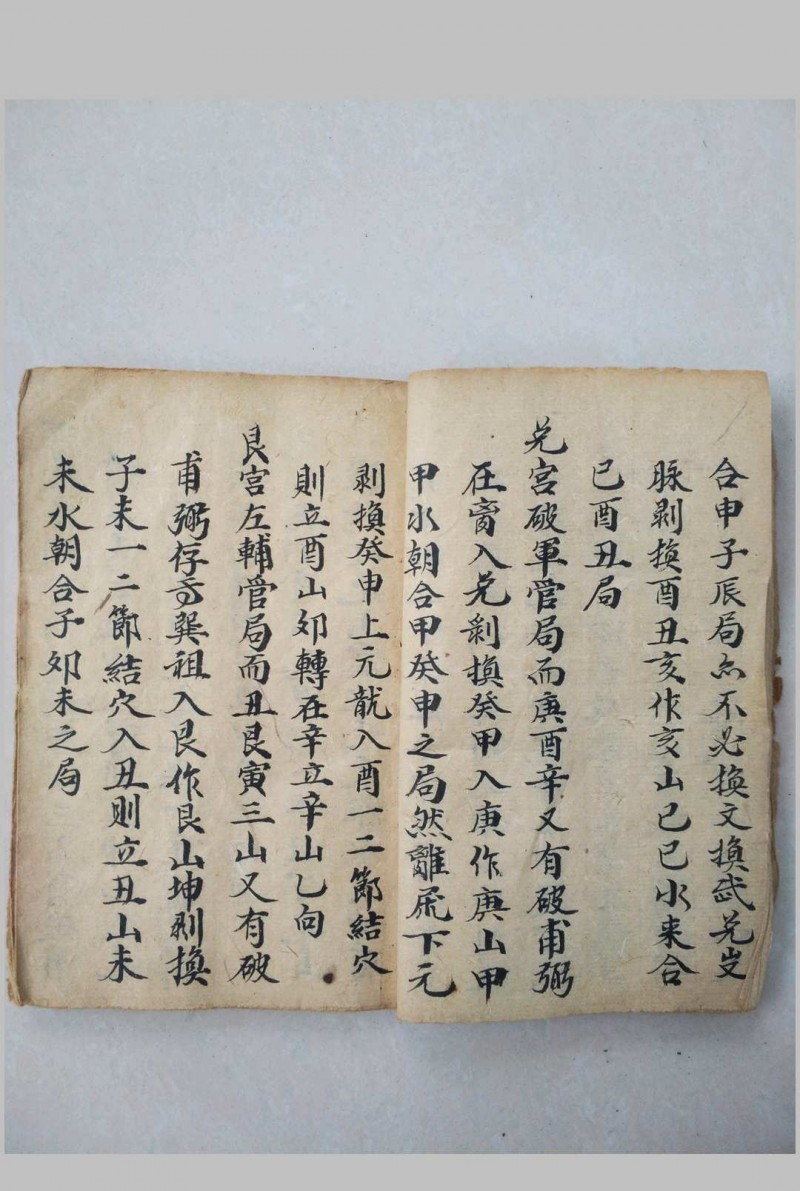 合申子辰局亦不必換文換武兑岌
脉剥換酉丑亥作亥山巳巳水来合
巳酉丑局
兑宫破軍管局而庚酉辛又有破甫弼
在 入兑剝換癸甲入庚作庚山甲
甲水朝合甲癸申之局然離 下元
剥換癸申上元龍入酉一二節結穴
則立酉山卯轉在辛立辛山乙向
艮宫左輔管局而丑艮寅三山又有破
甫弼存 巽祖入艮作艮山坤剥換
子未一二節結穴入丑則立丑山未
未水朝合子卯未之局